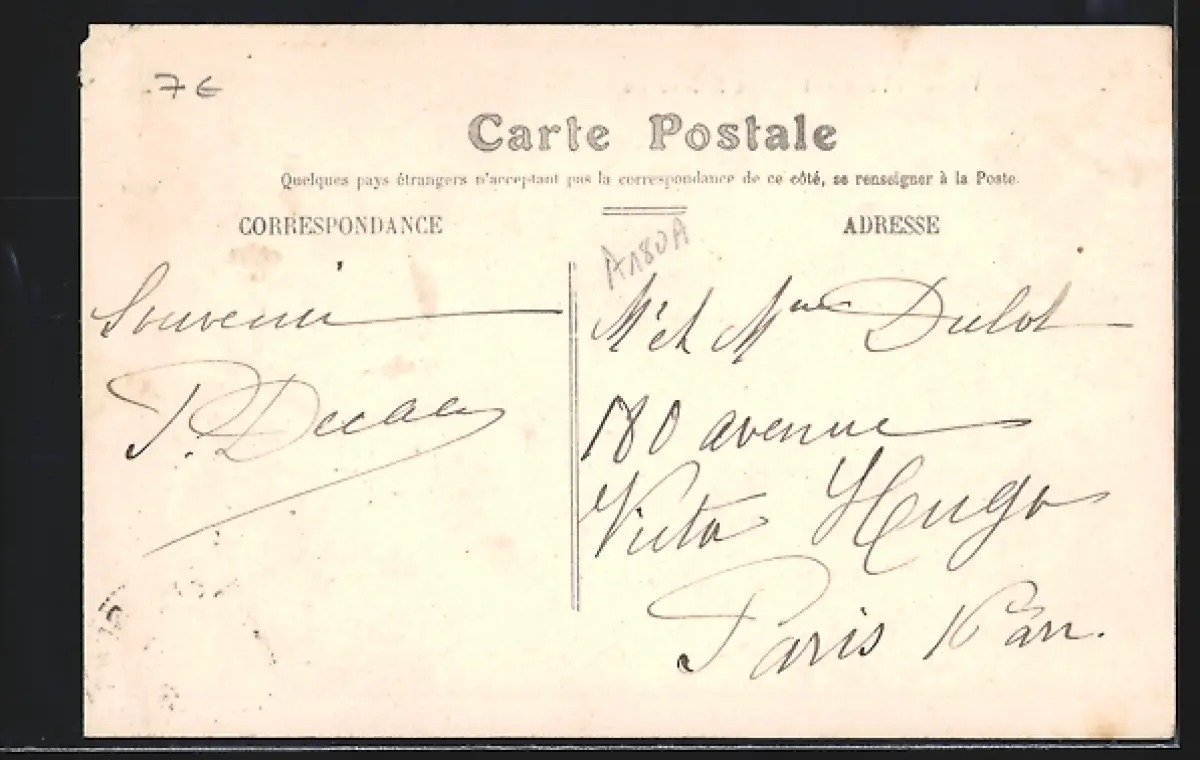 7 €
Carte Postale
Quelques pays étrangers n'acceptant pas la correspondance de ce côté, se renseigner à la Poste.
CORRESPONDANCE
ADRESSE
A180A
Souvenir
P.
Mr et Mme Dulot
180 avenue
Victor Hugo
Paris